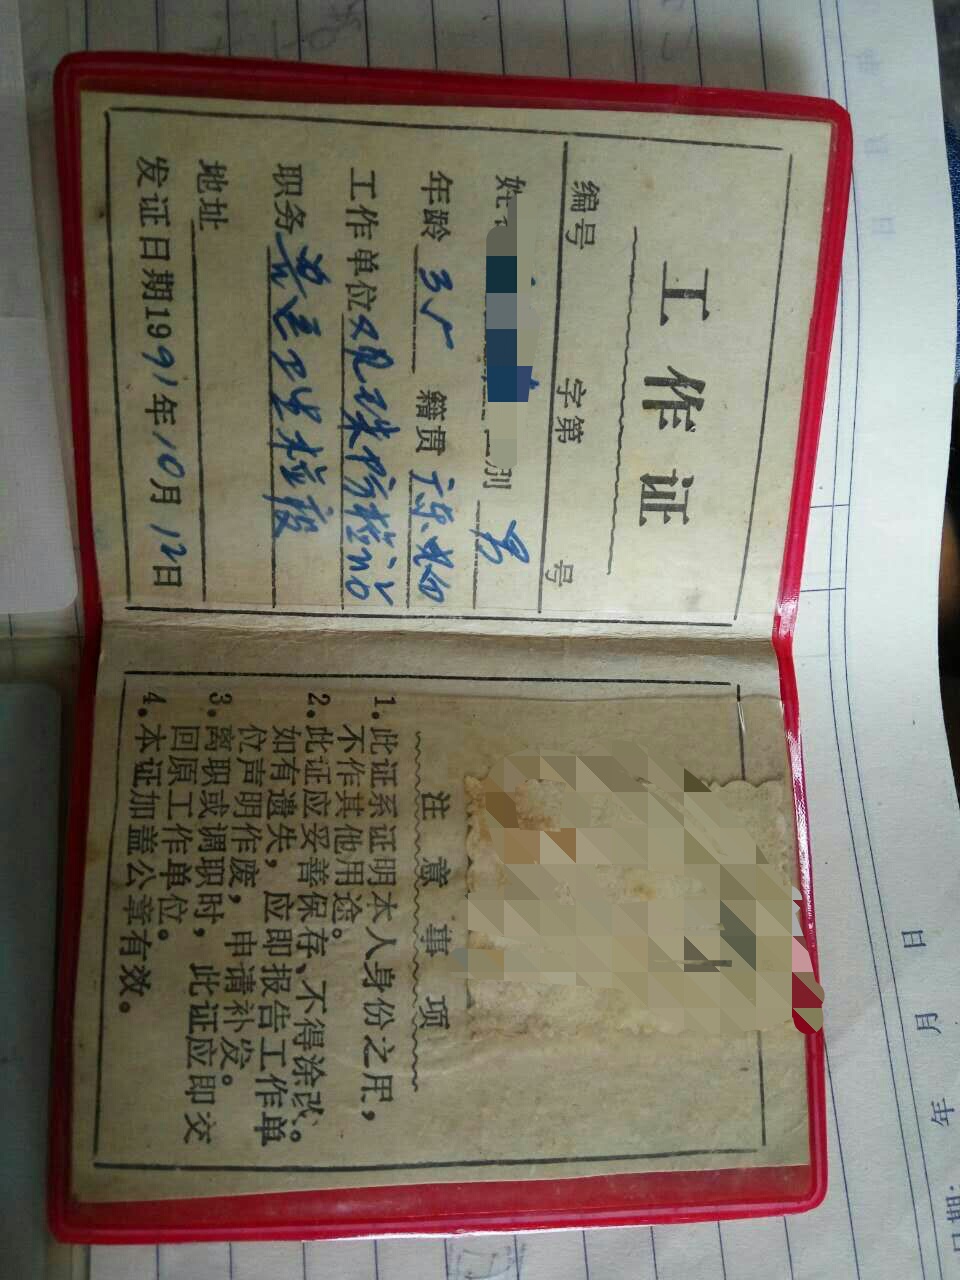 工作证
编号 字第 号
姓 别 男
年龄 35 籍贯
工作单位
职务 卫生检疫
地址
发证日期1991年10月12日
注意事项
1.此证系证明本人身份之用，
不作其他用途。
2.此证应妥善保存、不得涂改。
如有遗失，应即报告工作单
位声明作废，申请补发。
3.离职或调职时，此证应即交
回原工作单位。
4.本证加盖公章有效。
年 月 日
日期：